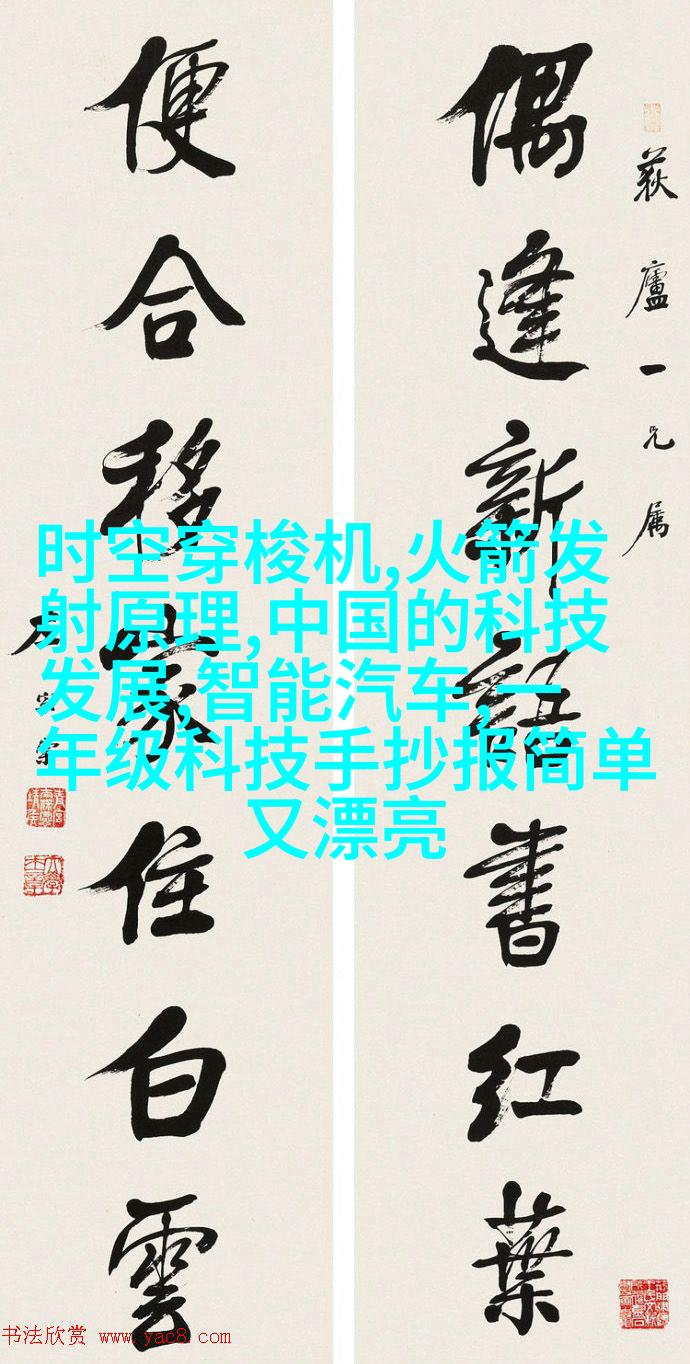 偶逢新語書紅葉
荻廬一兄属
便合移家住白雲
时空穿梭机,火箭发
射原理,中国的科技
发展,智能汽车,一
年级科技手抄报简单
又漂亮
书法欣赏 www.yac8.com